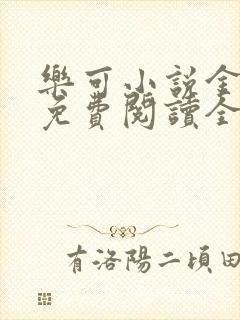 樂可小說全
免費閱讀全
有洛陽二頃田